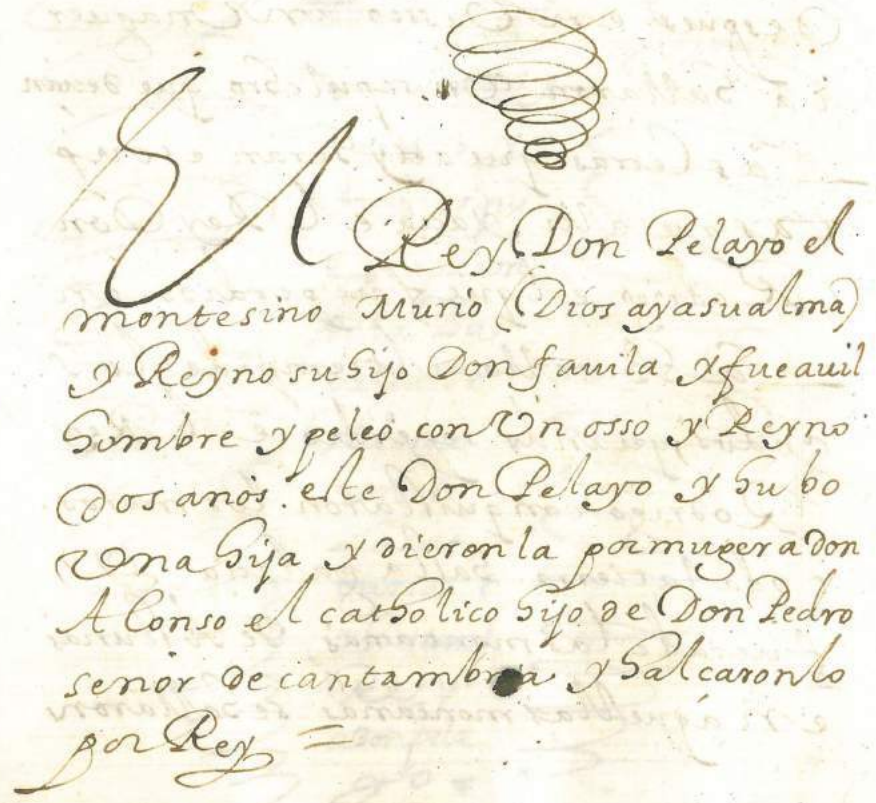 El Rey Don Pelayo el
montesino Murio (Dios ayasualma)
y Reyno su hijo Don favila y fueavil
hombre y peleo con Un osso y Reyno
Dos anos. este Don Pelayo y hubo
Una hija y dieronla por mugera don
Alonso el catholico hijo de Don Pedro
señor de cantambria y halcaronlo
por Rey =